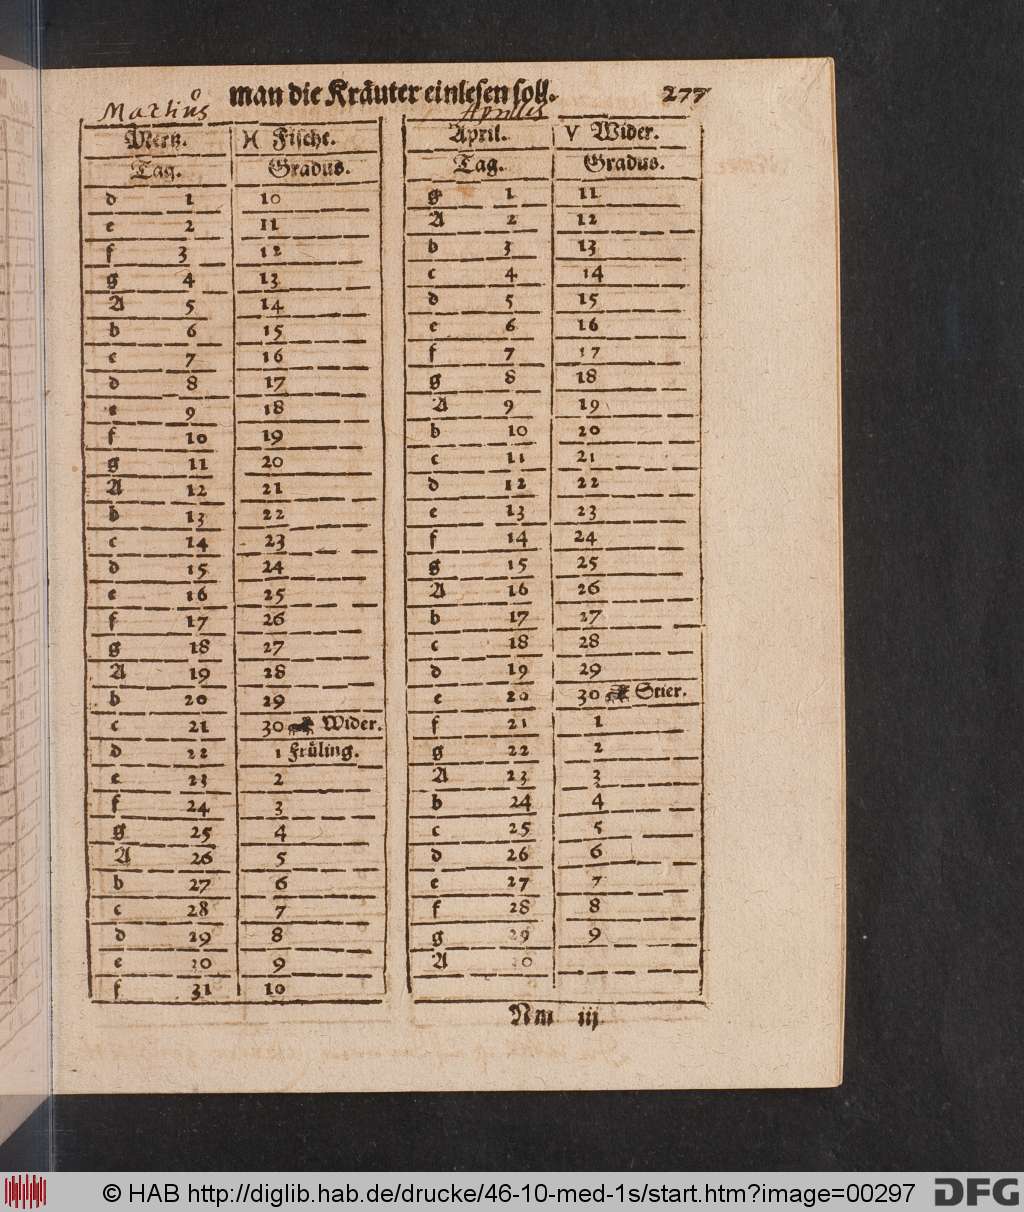 man die Kräuter einlesen soll. 277
Martiůs
Mertz. ♓ Fische.
Tag. Gradus.
d 1 10
e 2 11
f 3 12
g 4 13
A 5 14
b 6 15
c 7 16
d 8 17
e 9 18
f 10 19
g 11 20
A 12 21
b 13 22
c 14 23
d 15 24
e 16 25
f 17 26
g 18 27
A 19 28
b 20 29
c 21 30 Wider.
d 22 1 Früling.
e 23 2
f 24 3
g 25 4
A 26 5
b 27 6
c 28 7
d 29 8
e 30 9
f 31 10
Aprilis
April. ♈ Wider.
Tag. Gradus.
g 1 11
A 2 12
b 3 13
c 4 14
d 5 15
e 6 16
f 7 17
g 8 18
A 9 19
b 10 20
c 11 21
d 12 22
e 13 23
f 14 24
g 15 25
A 16 26
b 17 27
c 18 28
d 19 29
e 20 30 Stier.
f 21 1
g 22 2
A 23 3
b 24 4
c 25 5
d 26 6
e 27 7
f 28 8
g 29 9
A 30
Nm iij
© HAB http://diglib.hab.de/drucke/46-10-med-1s/start.htm?image=00297 DFG